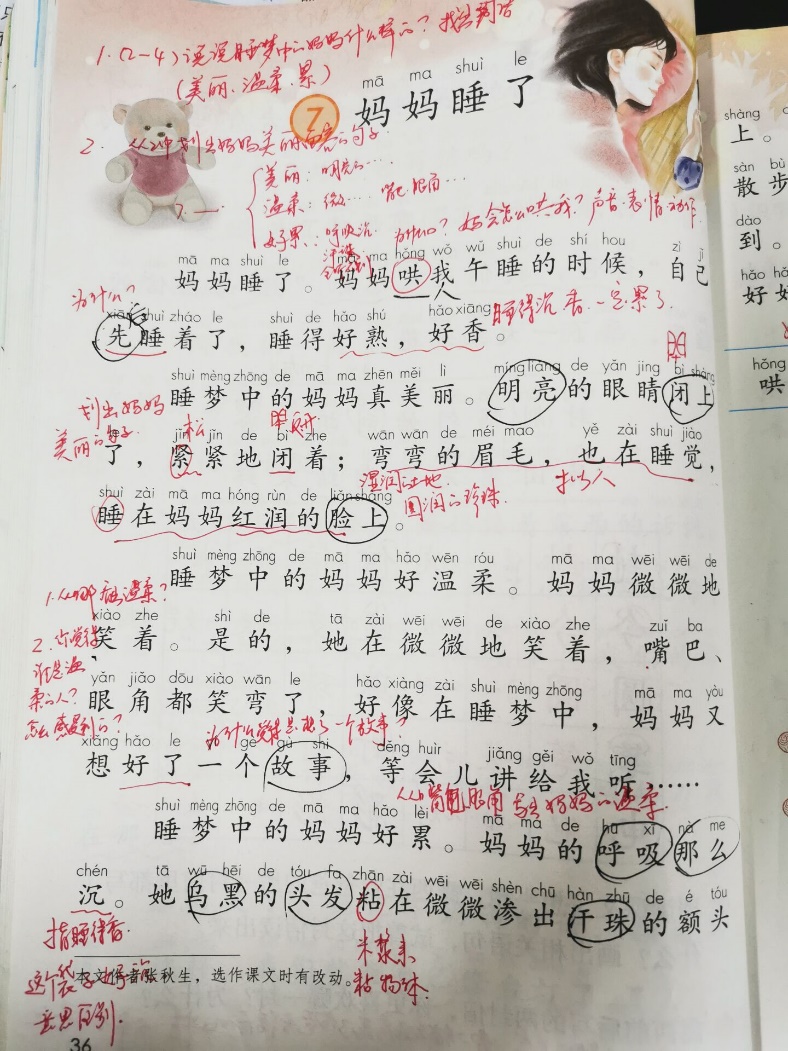 1.(2-4)说说睡梦中的妈妈什么样的?
(美丽.温柔.累)
7
mā ma shuì le
妈妈睡了
2.
美丽:明亮的…
温柔:微…嘴巴.眼角…
好累:呼吸沉
为什么? 妈会怎么哄我?声音.表情.动作
mā ma shuì le mā ma hǒng wǒ wǔ shuì de shí hou zì jǐ
妈妈睡了。妈妈哄我午睡的时候,自己
为什么?
xiān shuì zháo le shuì de hǎo shú hǎo xiāng
先睡着了,睡得好熟,好香。
睡得沉 香.一定.累了.
shuì mèng zhōng de mā ma zhēn měi lì míng liàng de yǎn jing bì shàng
睡梦中的妈妈真美丽。明亮的眼睛闭上
划出妈妈
美丽的句子
松
le jǐn jǐn de bì zhe wān wān de méi mao yě zài shuì jiào
了,紧紧地闭着;弯弯的眉毛,也在睡觉,
湿润的土地
圆润的珍珠
拟人
shuì zài mā ma hóng rùn de liǎn shang
睡在妈妈红润的脸上。
shuì mèng zhōng de mā ma hǎo wēn róu mā ma wēi wēi de
睡梦中的妈妈好温柔。妈妈微微地
xiào zhe shì de tā zài wēi wēi de xiào zhe zuǐ ba
笑着。是的,她在微微地笑着,嘴巴、
2.你觉得
谁是温
柔的人?
怎么感受到的?
yǎn jiǎo dōu xiào wān le hǎo xiàng zài shuì mèng zhōng mā ma yòu
眼角都笑弯了,好像在睡梦中,妈妈又
xiǎng hǎo le yí ge gù shi děng huìr jiǎng gěi wǒ tīng
想好了一个故事,等会儿讲给我听……
shuì mèng zhōng de mā ma hǎo lèi mā ma de hū xī nà me
睡梦中的妈妈好累。妈妈的呼吸那么
chén tā wū hēi de tóu fa zhān zài wēi wēi shèn chū hàn zhū de é tóu
沉。她乌黑的头发粘在微微渗出汗珠的额头
指睡得香
粘物体
本文作者张秋生,选作课文时有改动。
意思区别.
36
shàng
上。
sàn bù
散步
dào
到。
hǎo hǎo
好好
hǒng
哄